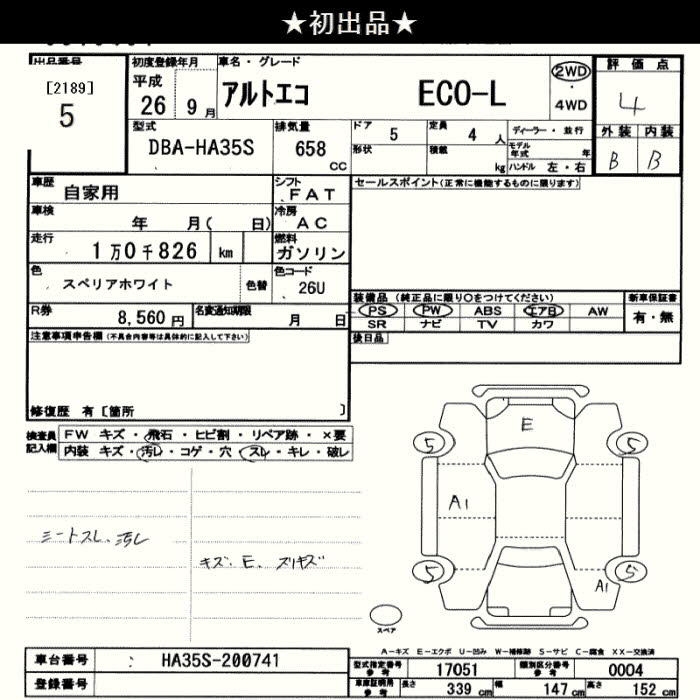 ★初出品★
出品番号
[2189]
5
初度登録年月
平成
26 9月
車名・グレード
アルトエコ ECO-L
2WD
・
4WD
評価点
4
外装 内装
B B
型式
DBA-HA35S
排気量
658
CC
ドア 5
定員 4 人
ディーラー・並行
形状
積載 kg
モデル年式 年
ハンドル 左・右
車歴 自家用
シフト FAT
セールスポイント(正常に機能するものに限ります)
車検 年 月( 日)
冷房 AC
走行 1万0千826 km
燃料 ガソリン
色 スペリアホワイト 色替
色コード 26U
装備品 (純正品に限り○をつけてください)
新車保証書
PS PW ABS エアB AW
有・無
SR ナビ TV カワ
R券 8,560円
名変通知期限 月 日
後日品
注意事項申告欄(不具合内容等は具体的に記入して下さい)
修復歴 有[箇所 ]
検査員記入欄
FW キズ・飛石・ヒビ割・リペア跡・×要
内装 キズ・汚レ・コゲ・穴・スレ・キレ・破レ
E
5 5
A1
シートスレ、汚レ
キズ、E、スリキズ
5 5
A1
スペア
A-キズ E-エクボ U-凹み W-補修跡 S-サビ C-腐食 XX-交換済
車台番号 : HA35S-200741
型式指定番号参考 17051
類別区分番号参考 0004
登録番号
車庫証明用参考 長さ 339 cm 幅 147 cm 高さ 152 cm